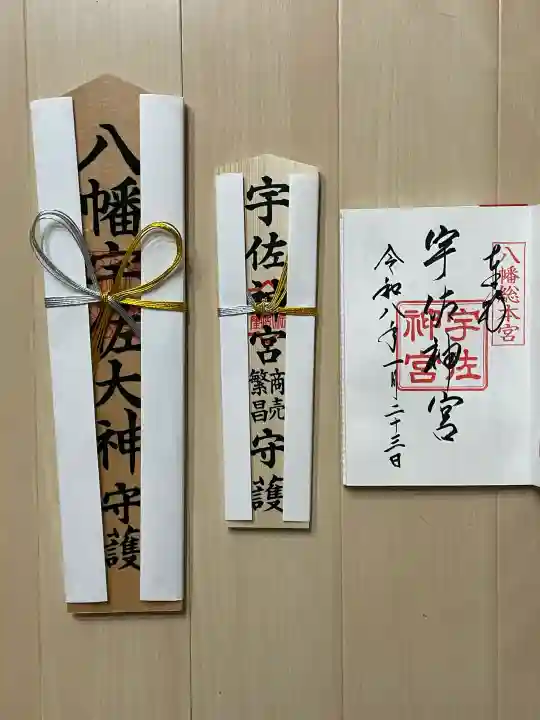 八幡宇佐大神守護
宇佐神宮商売繁昌守護
八幡総本宮
奉拝
宇佐神宮
宇佐神宮
令和八年一月二十三日